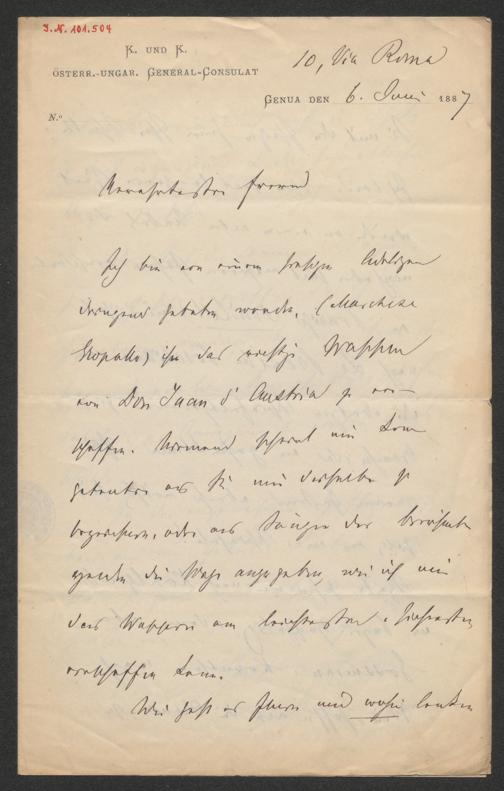 J.N. 101.504
K. UND K.
ÖSTERR.-UNGAR. GENERAL-CONSULAT
10, Via Roma
GENUA DEN 6. Juni 1887
N.º
Verehrtester Freund
Ich bin von einem hiesigen Adeligen
dringend gebeten worden, (Marchese
ihm das Wappen
von Don Juan d'Austria zu ver-
schaffen. Niemand scheint mir
als Sie mir dasselbe zu
oder als Sänger der
die Wege anzugeben, wie ich mir
das Wappen am leichtesten &
verschaffen kann.
Wie geht es Ihnen und wohin lenken